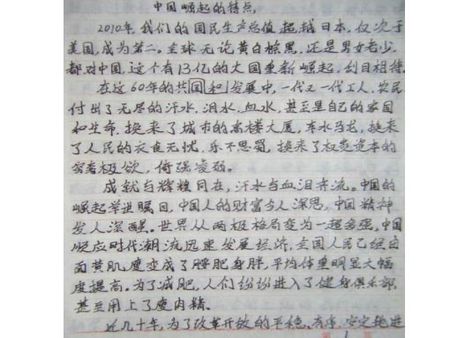 中国崛起的特点
2010年,我们的国民生产总值超越日本,仅次于
美国,成为第二。全球无论黄白棕黑,还是男女老少,
都对中国,这个有13亿的大国重新崛起,刮目相待
在这60年的共和国发展中,一代又一代工人、农民
付出了无尽的汗水、泪水、血水,甚至是自己的家园
和生命,换来了城市的高楼大厦,车水马龙,换来
了人民的衣食无忧,乐不思蜀,换来了权贵资本的
穷奢极欲,倚强凌弱。
成就与辉煌同在,汗水与血泪齐流。中国的
崛起举世瞩目,中国人的财富令人深思,中国精神
发人深醒。世界从两极格局变为一超多强。中国
顺应时代潮流迅速发展经济,全国人民已经由
面黄肌瘦变成了膀肥身胖,平均体重明显大幅
度提高。为了减肥,人们纷纷进入了健身俱乐部,
甚至用上了瘦肉精。
近几十年,为了改革开放的平稳、有序、安定地进
1